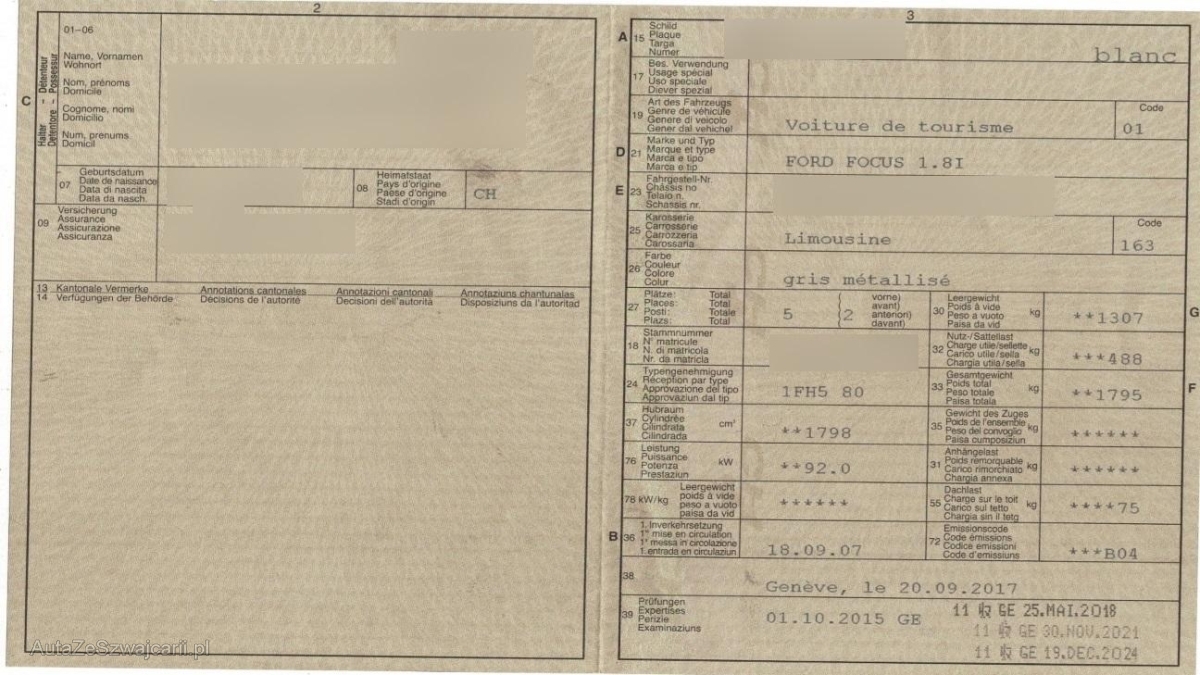 2
01-06
C
Halter - Détenteur
Detentore - Possessur
Name, Vornamen
Wohnort
Nom, prénoms
Domicile
Cognome, nomi
Domicilio
Num, prenums
Domicil
07
Geburtsdatum
Date de naissance
Data di nascita
Data da nasch.
08
Heimatstaat
Pays d'origine
Paese d'origine
Stadi d'origin
CH
09
Versicherung
Assurance
Assicurazione
Assicuranza
13 Kantonale Vermerke Annotations cantonales Annotazioni cantonali Annotaziuns chantunalas
14 Verfügungen der Behörde Décisions de l'autorité Decisioni dell'autorità Disposiziuns da l'autoritad
3
A 15
Schild
Plaque
Targa
Numer
blanc
17
Bes. Verwendung
Usage spécial
Uso speciale
Diever spezial
19
Art des Fahrzeugs
Genre de véhicule
Genere di veicolo
Gener dal vehichel
Voiture de tourisme
Code
01
D 21
Marke und Typ
Marque et type
Marca e tipo
Marca e tip
FORD FOCUS 1.8I
E 23
Fahrgestell-Nr.
Châssis no
Telaio n.
Schassis nr.
25
Karosserie
Carrosserie
Carrozzeria
Carossaria
Limousine
Code
163
26
Farbe
Couleur
Colore
Colur
gris métallisé
27
Plätze: Total
Places: Total
Posti: Totale
Plazs: Total
5
2
vorne)
avant)
anteriori)
davant)
30
Leergewicht
Poids à vide
Peso a vuoto
Paisa da vid
kg
**1307
G
18
Stammnummer
N° matricule
N. di matricola
Nr. da matricla
32
Nutz-/Sattellast
Charge utile/sellette
Carico utile/sella
Chargia utila/sella
kg
***488
24
Typengenehmigung
Réception par type
Approvazione del tipo
Approvaziun dal tip
1FH5 80
33
Gesamtgewicht
Poids total
Peso totale
Paisa totala
kg
**1795
F
37
Hubraum
Cylindrée
Cilindrata
Cilindrada
cm³
**1798
35
Gewicht des Zuges
Poids de l'ensemble
Peso del convoglio
Paisa cumposiziun
kg
******
76
Leistung
Puissance
Potenza
Prestaziun
kW
**92.0
31
Anhängelast
Poids remorquable
Carico rimorchiato
Chargia annexa
kg
******
78 kW/kg
Leergewicht
poids à vide
peso a vuoto
paisa da vid
******
55
Dachlast
Charge sur le toit
Carico sul tetto
Chargia sin il tetg
kg
****75
B 36
1. Inverkehrsetzung
1re mise en circulation
1a messa in circolazione
1. entrada en circulaziun
18.09.07
72
Emissionscode
Code émissions
Codice emissioni
Code d'emissiuns
***B04
38
Genève, le 20.09.2017
39
Prüfungen
Expertises
Perizie
Examinaziuns
01.10.2015 GE
11 GE 25.MAI.2018
11 GE 30.NOV.2021
11 GE 19.DEC.2024
AutaZeSzwajcarii.pl